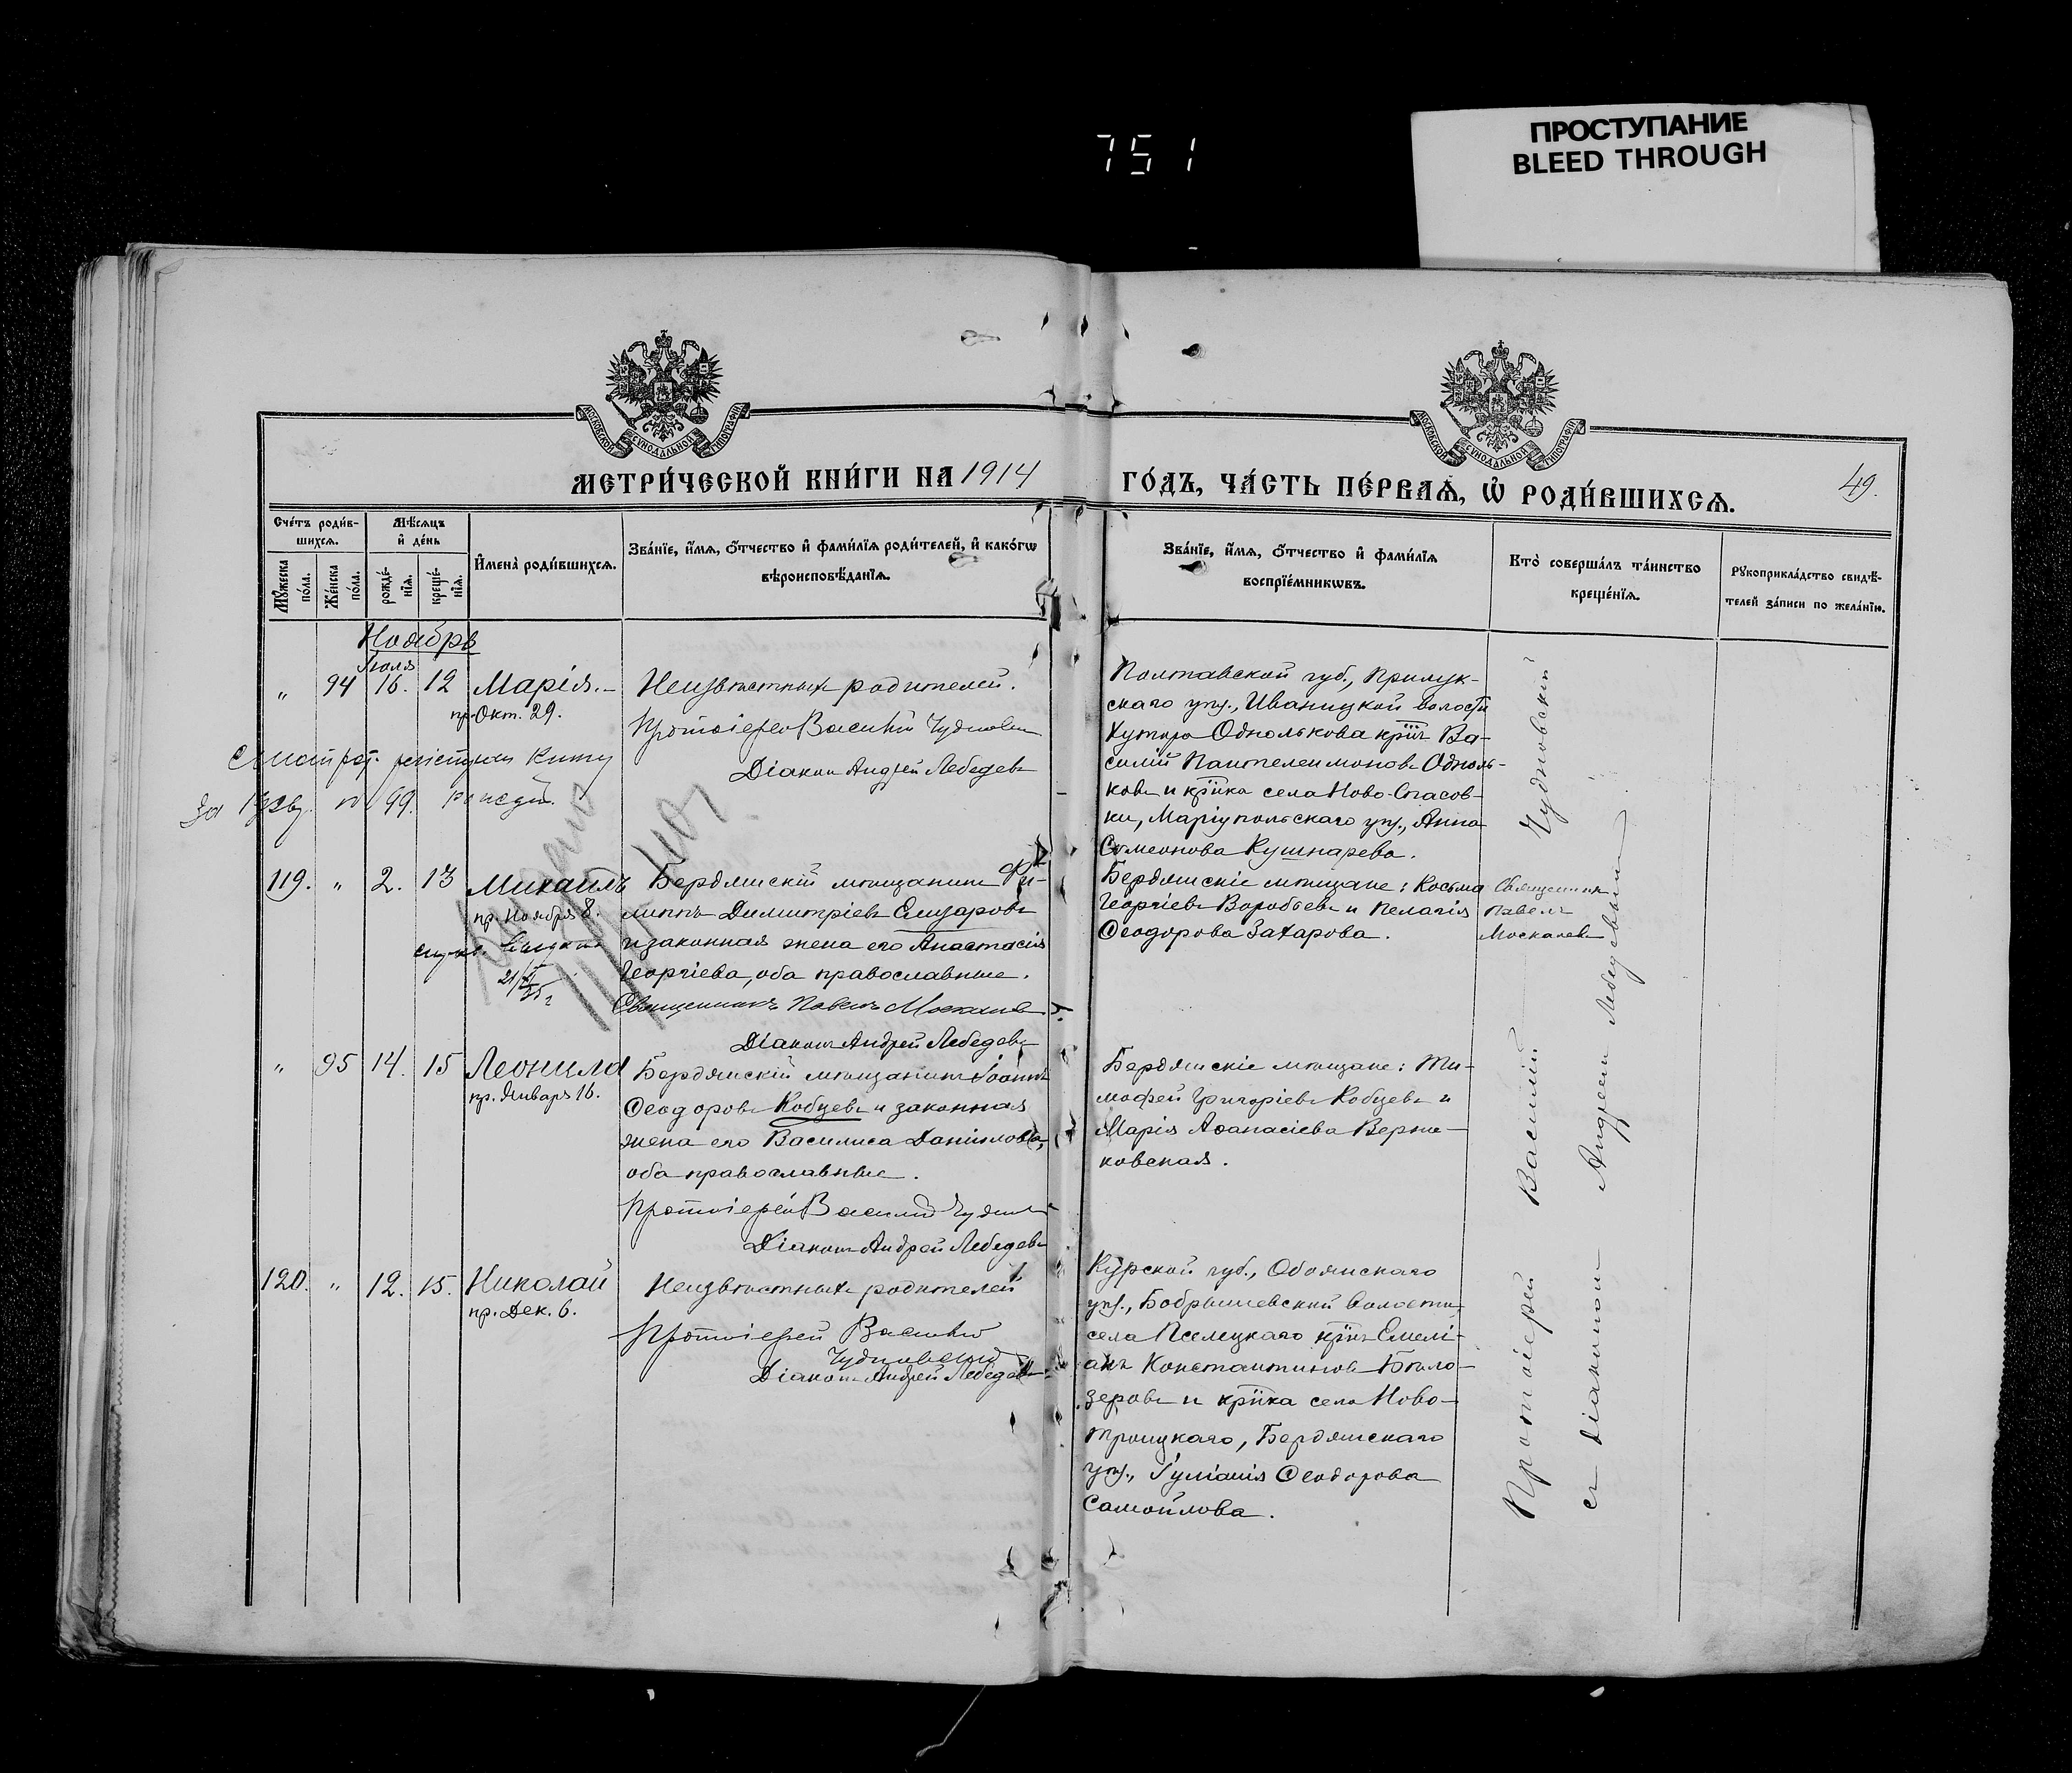 751
ПРОСТУПАНИЕ
BLEED THROUGH
МОСКОВСКОЙ СѴНОДАЛЬНОЙ ТИПОГРАФІИ
МОСКОВСКОЙ СѴНОДАЛЬНОЙ ТИПОГРАФІИ
МЕТРИ́ЧЕСКОЙ КНИ́ГИ НА 1914
ГО́ДЪ, ЧА́СТЬ ПЕ́РВАѦ, Ѡ҆ РОДИ́ВШИХСѦ.
49.
Сче́тъ роди́в-
шихсѧ.
Мꙋ́жеска по́ла.
Же́нска по́ла.
Мѣ́сѧцъ
и҆ де́нь
рожде́-
нїѧ.
креще́-
нїѧ.
И҆мена̀ роди́вшихсѧ.
Зва́нїе, и҆́мѧ, ѻ҆́тчество и҆ фами́лїѧ роди́телей, и҆ како́гѡ
вѣроисповѣ́данїѧ.
Зва́нїе, и҆́мѧ, ѻ҆́тчество и҆ фами́лїѧ
воспрїе́мникѡвъ.
Кто̀ соверша́лъ та́инство
креще́нїѧ.
Рꙋкоприкла́дство свидѣ́-
телей за́писи по жела́нїю.
Ноябрь
Іюля
" 94 16. 12 Марія.
пр. Окт. 29.
Неизвѣстныхъ родителей.
Протоіерей Василій Чудновск
Діаконъ Андрей Лебедевъ
Полтавской губ., Прилук-
скаго уѣз., Иваницкой волости
Хутора Однолькова крнъ Ва-
силій Пантелеимоновъ Одноль-
ковъ и крнка села Ново-Спасов-
ки, Маріупольскаго уѣз., Анна
Симеонова Кушнарева.
99.
119. " 2. 13 Михаилъ
пр. Ноября 8.
Бердянскій мѣщанинъ Фи-
липпъ Димитріевъ Елизаровъ
и законная жена его Анастасія
Георгіева, оба православные.
Священникъ Павелъ Москалевъ
Діаконъ Андрей Лебедевъ
Бердянскіе мѣщане: Косьма
Георгіевъ Воробьевъ и Пелагія
Ѳеодорова Захарова.
Священникъ
Павелъ
Москалевъ
" 95 14. 15 Леонилла
пр. Января 16.
Бердянскій мѣщанинъ Іоаннъ
Ѳеодоровъ Кобцевъ и законная
жена его Василиса Даніилова,
оба православные.
Протоіерей Василій Чудновск
Діаконъ Андрей Лебедевъ
Бердянскіе мѣщане: Ти-
мофей Григоріевъ Кобцевъ и
Марія Аѳанасіева Верни-
ковская.
120. " 12. 15. Николай
пр. Дек. 6.
Неизвѣстныхъ родителей
Протоіерей Василій
Чудновскій
Діаконъ Андрей Лебедевъ
Курской губ., Обоянскаго
уѣз., Бобрышевской волости,
села Пселецкаго крнъ Емелі-
анъ Константиновъ Бѣло-
зеровъ и крнка села Ново-
троицкаго, Бердянскаго
уѣз., Іуліанія Ѳеодорова
Самойлова.
Протоіерей Василій Чудновскій
съ діакономъ Андреемъ Лебедевымъ